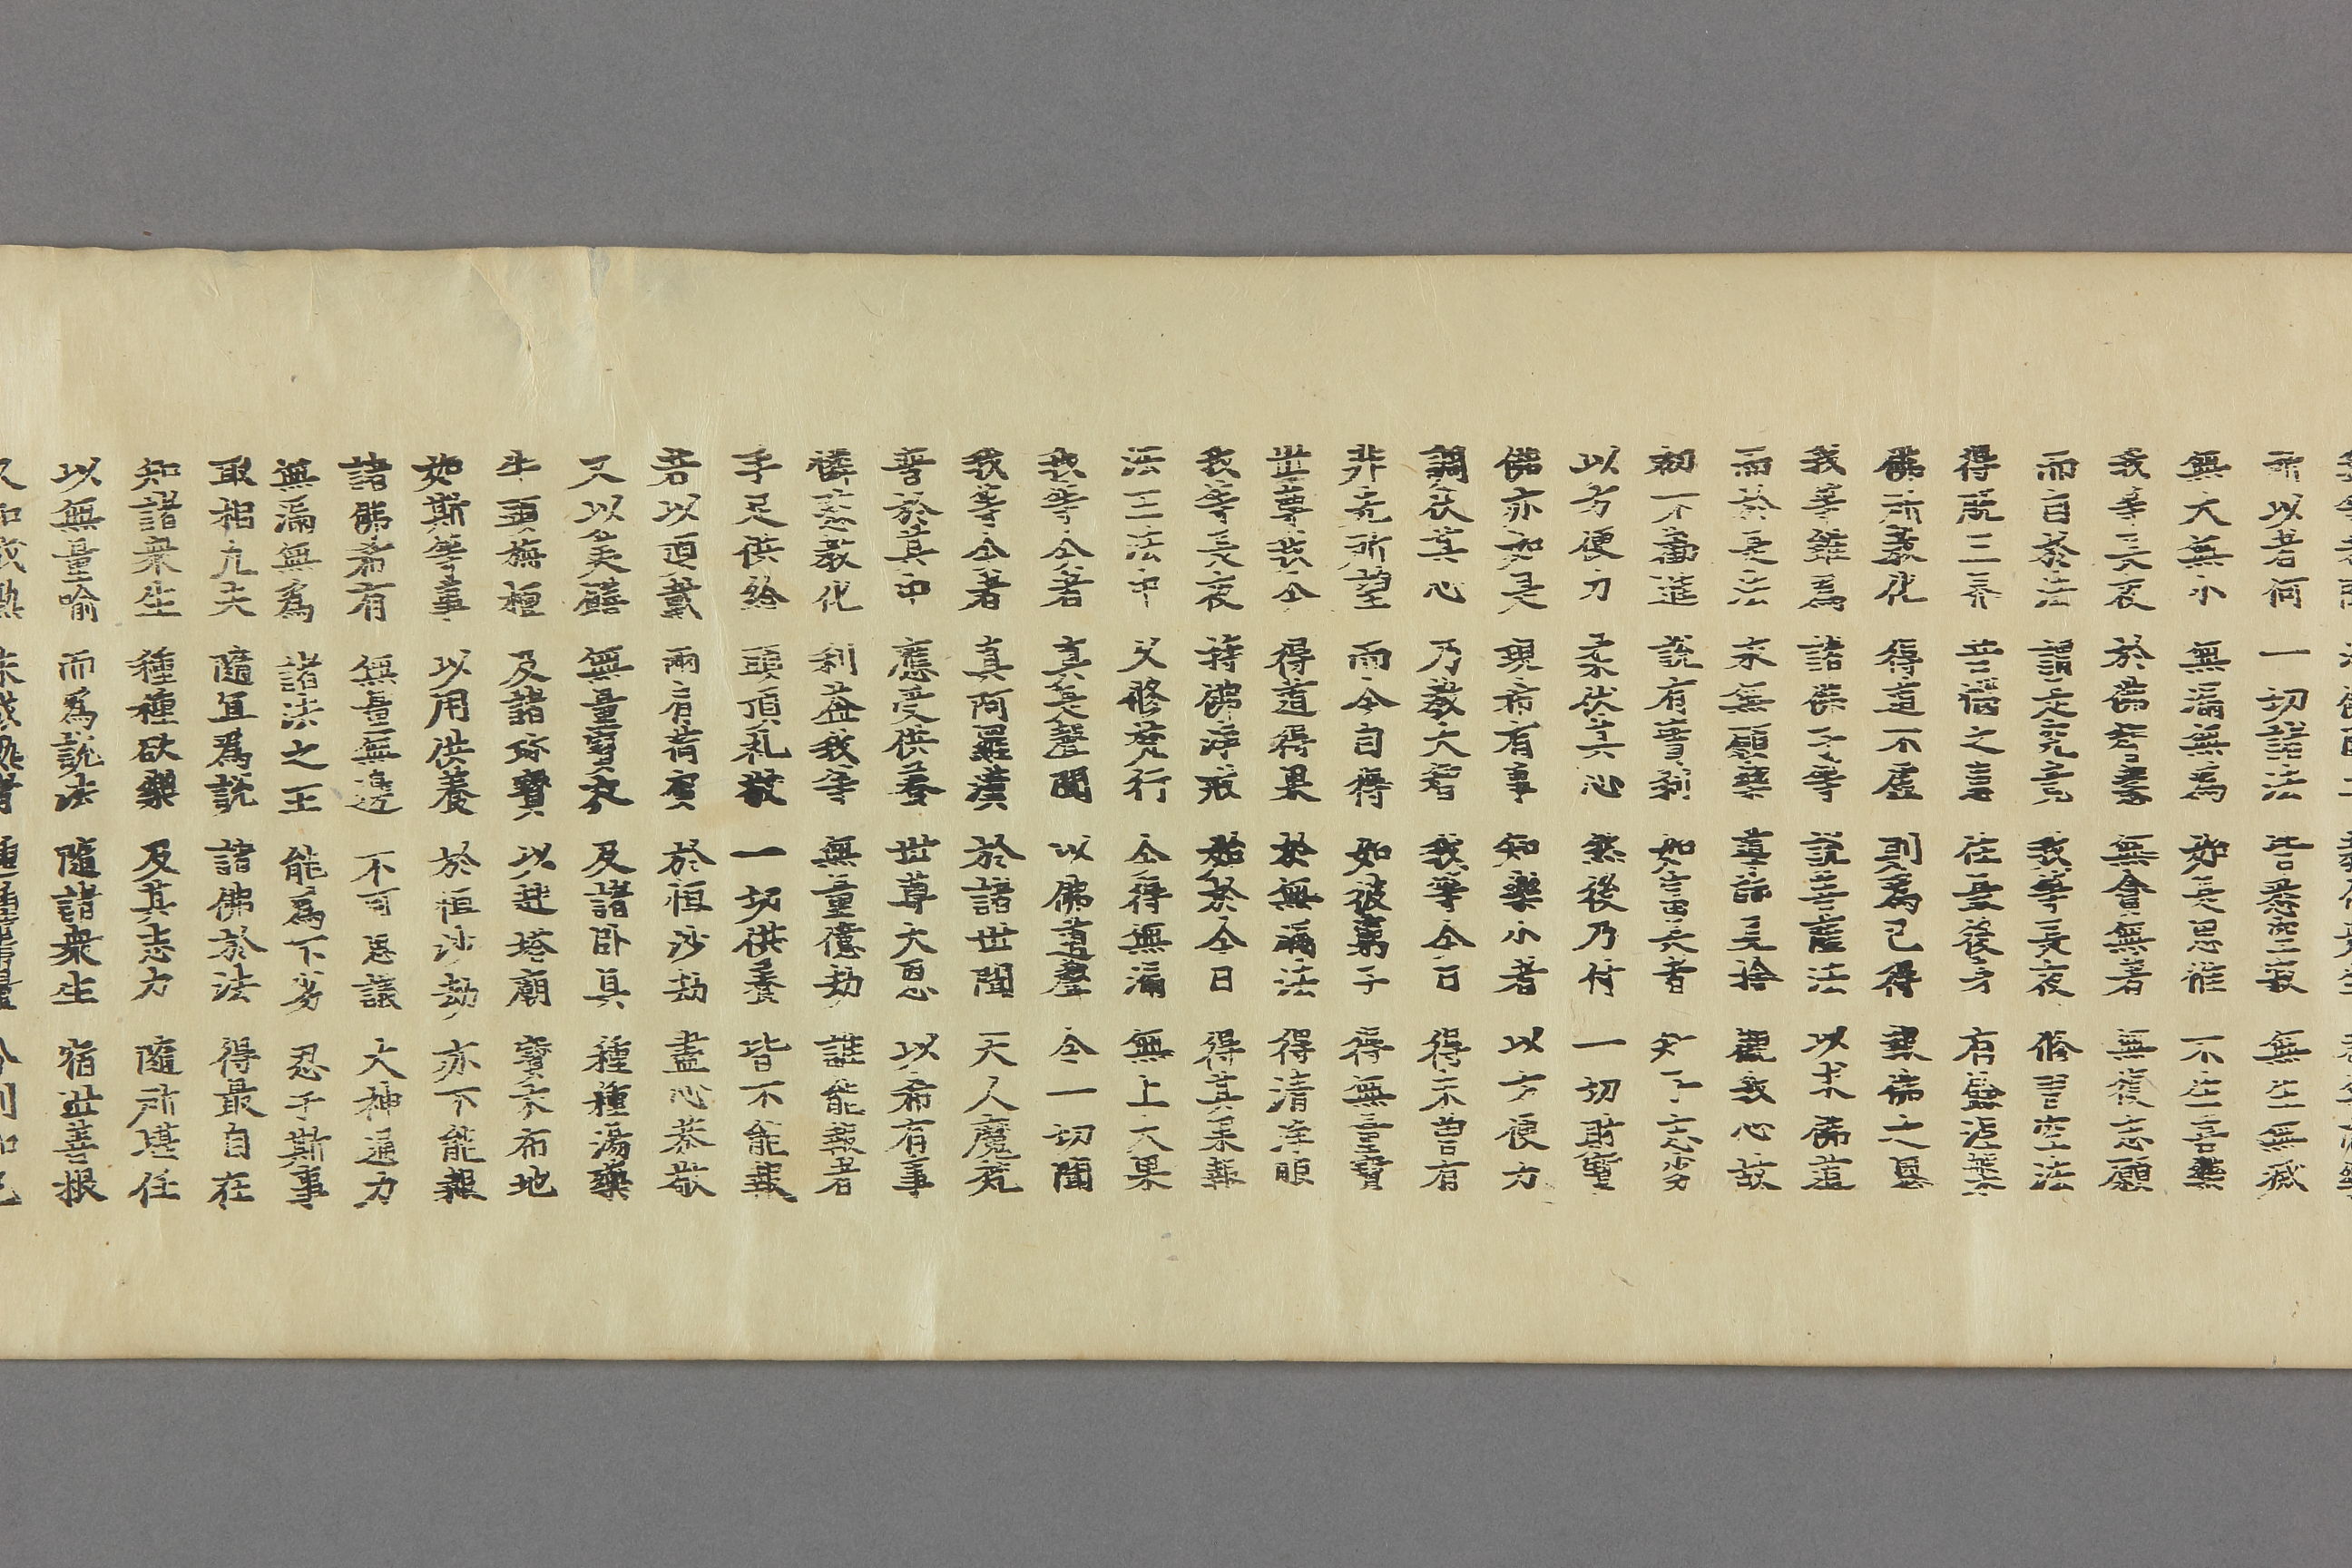 所以者何 一切諸法 皆悉空寂 無生無滅
無大無小 無漏無為 如是思惟 不生喜樂
我等長夜 於佛智慧 無貪無著 無復志願
而自於法 謂是究竟 我等長夜 修習空法
得脫三界 苦惱之患 住最後身 有餘涅槃
佛所教化 得道不虛 則為已得 報佛之恩
我等雖為 諸佛子等 說菩薩法 以求佛道
而於是法 永無願樂 導師見捨 觀我心故
初不勸進 說有實利 如富長者 知子志劣
以方便力 柔伏其心 然後乃付 一切財寶
佛亦如是 現希有事 知樂小者 以方便力
調伏其心 乃教大智 我等今日 得未曾有
非先所望 而今自得 如彼窮子 得無量寶
世尊我今 得道得果 於無漏法 得清淨眼
我等長夜 持佛淨戒 始於今日 得其果報
法王法中 久修梵行 今得無漏 無上大果
我等今者 真是聲聞 以佛道聲 令一切聞
我等今者 真阿羅漢 於諸世間 天人魔梵
普於其中 應受供養 世尊大恩 以希有事
憐愍教化 利益我等 無量億劫 誰能報者
手足供給 頭頂礼敬 一切供養 皆不能報
若以頂戴 兩肩荷負 於恒沙劫 盡心恭敬
又以美饍 無量寶衣 及諸卧具 種種湯藥
牛頭栴檀 及諸珍寶 以起塔廟 寶衣布地
如斯等事 以用供養 於恒沙劫 亦不能報
諸佛希有 無量無邊 不可思議 大神通力
無漏無為 諸法之王 能為下劣 忍于斯事
取相凡夫 隨宜為說 諸佛於法 得最自在
知諸衆生 種種欲樂 及其志力 隨所堪任
以無量喻 而為說法 隨諸衆生 宿世善根